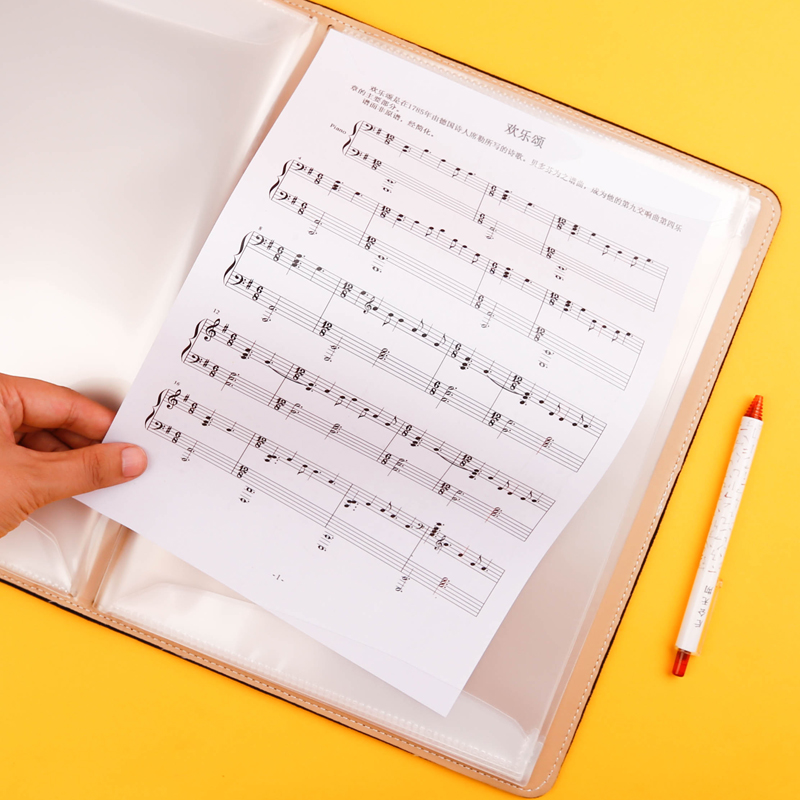 欢乐颂
欢乐颂是在1785年由德国诗人席勒所写的诗歌。贝多芬为之谱曲，成为他的第九交响曲第四乐
章的主要部分。
谱面非原谱，经简化。
Piano
4
8
12
16
-1-